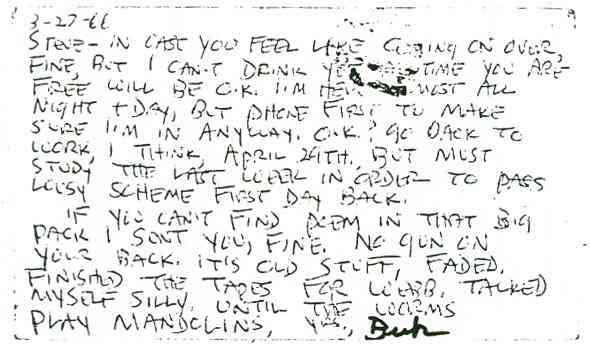 3-27-66
STEVE- IN CASE YOU FEEL LIKE COMING ON OVER,
FINE, BUT I CAN'T DRINK TIME YOU ARE
FREE WILL BE O.K. I'M MOST ALL
NIGHT + DAY, BUT PHONE FIRST TO MAKE
SURE I'M IN ANYWAY. O.K.? GO BACK TO
WORK, I THINK, APRIL 29TH, BUT MUST
STUDY THE LAST WEEK IN ORDER TO PASS
LOUSY SCHEME FIRST DAY BACK.
IF YOU CAN'T FIND POEM IN THAT BIG
PACK I SENT YOU, FINE. NO GUN ON
YOUR BACK. IT'S OLD STUFF, FADED.
FINISHED THE TAPES FOR WEBB. TALKED
MYSELF SILLY. UNTIL THE WORMS
PLAY MANDOLINS, YRS., Buk